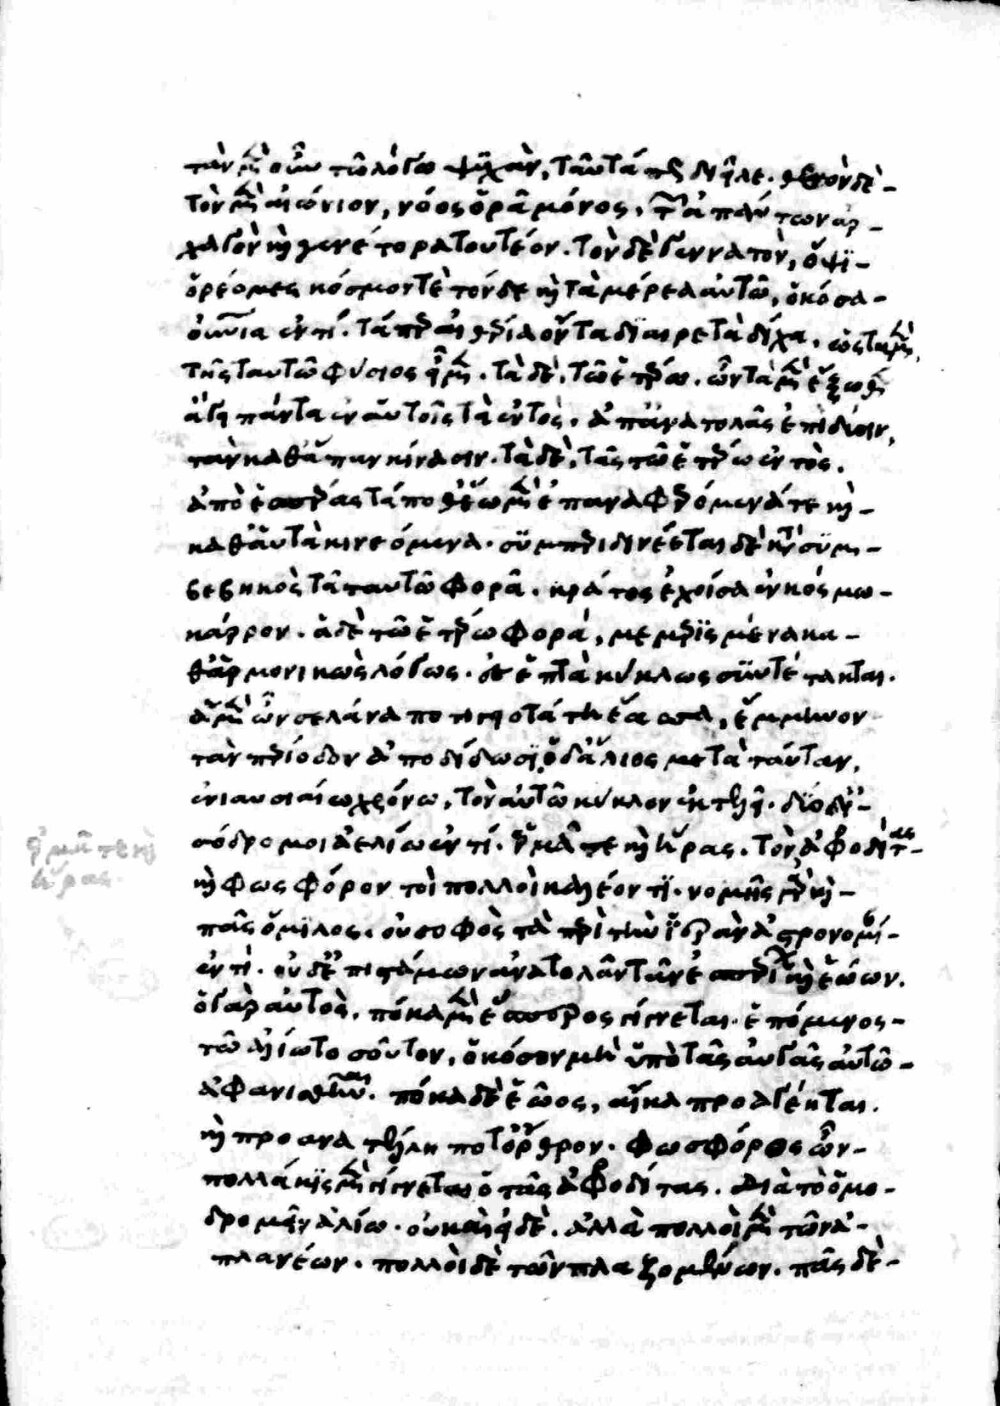 τὰν μὲν ὦν τῶ ὅλω ψυχὰν, ταύτά πως διῇλε. θεὸν δὲ
τὸν μὲν αἰώνιον, νόος ὁρῇ μόνος, τῶν ἁπάντων ἀρ-
χαγὸν καὶ γενέτορα τουτέων. τὸν δὲ γεννατὸν, ὄψϊ
ὁρέομες κόσμον τὲ τόνδε καὶ τὰ μέρεα αὐτῶ, ὁκόσα
ὠράνια ἐντί. τάπερ αἰθέρια ὄντα διαιρετὰ δίχα, ὡς τὰ μὲν
τῆς ταυτῶ φύσιος εἶμεν. τὰ δὲ, τῶ ἑτέρω. ὧν τὰ μὲν ἔξωθεν
ἄγει πάντα ἐν αὑτοῖς τὰ ἐντὸς, ἀπ' ἀνατολᾶς ἐπὶ δύσιν,
τὰν καθάπαν κίνασιν. τὰ δὲ, τᾶς τῶ ἑτέρω ἐντὸς.
ἀπὸ ἑσπέρας τὰ ποθ' ἕω μὲν ἐπαναφερόμενά τε καὶ
καθ' αὑτὰ κινεόμενα. συμπεριδινέεται δὲ κατὰ συμ-
βεβηκὸς τᾷ ταυτῶ φορᾷ. κράτος ἐχοίσα ἐν κόσμω
κάρρον. ἁ δὲ τῶ ἑτέρω φορά, μεμερισμένα κα-
θ' ἁρμονικὼς λόγως. ἐς ἑπτὰ κύκλως συντέτακται.
ἁ μὲν ὦν σελάνα ποτιγειοτάτη ἔασσα, ἔμμηνον
τὰν περίοδον ἀποδίδωσι, ὁ δ' ἄλιος μετὰ ταύταν,
ἐνιαυσιαίω χρόνω, τὸν αὑτῶ κύκλον ἐκτελεῖ. δύο δ' ἰ-
σόδρομοι ἀελίω ἐντί. ἑρμᾶ τε καὶ ἥρας. τὸν ἀφροδίτας
καὶ φωσφόρον τοὶ πολλοὶ καλέοντι. νομῆς γὰρ καὶ
πᾶς ὅμιλος. οὐ σοφὸς τὰ περὶ τὴν ἱερὰν ἀστρονομίαν
ἐντί. οὐδ' ἐπιστάμων ἀνατολᾶν τᾶν ἑσπερίων καὶ ἑώων.
ὁ γὰρ αὐτὸς, πόκα μὲν ἕσπερος γίνεται. ἑπόμενος
τῷ ἁλίῳ τοσοῦτον, ὁκόσον μὴ ὑπὸ τᾶς αὐγᾶς αὐτῶ
ἀφανισθῆναι. πόκα δὲ ἑῷος, αἴκα προαγέηται.
καὶ προανατέλλῃ ποτ' ὄρθρον. φωσφόρος ὦν
πολλάκις μὲν γίνεται ὁ τᾶς ἀφροδίτας. διὰ τὸ ὁμο-
δρομεῖν ἁλίω. οὐκ αἰεὶ δὲ. ἀλλὰ πολλοὶ μὲν τῶν ἀ-
πλανέων. πολλοὶ δὲ τῶν πλαζομένων. πᾶς δὲ
ἑρμῆ τε καὶ
ἥρας.